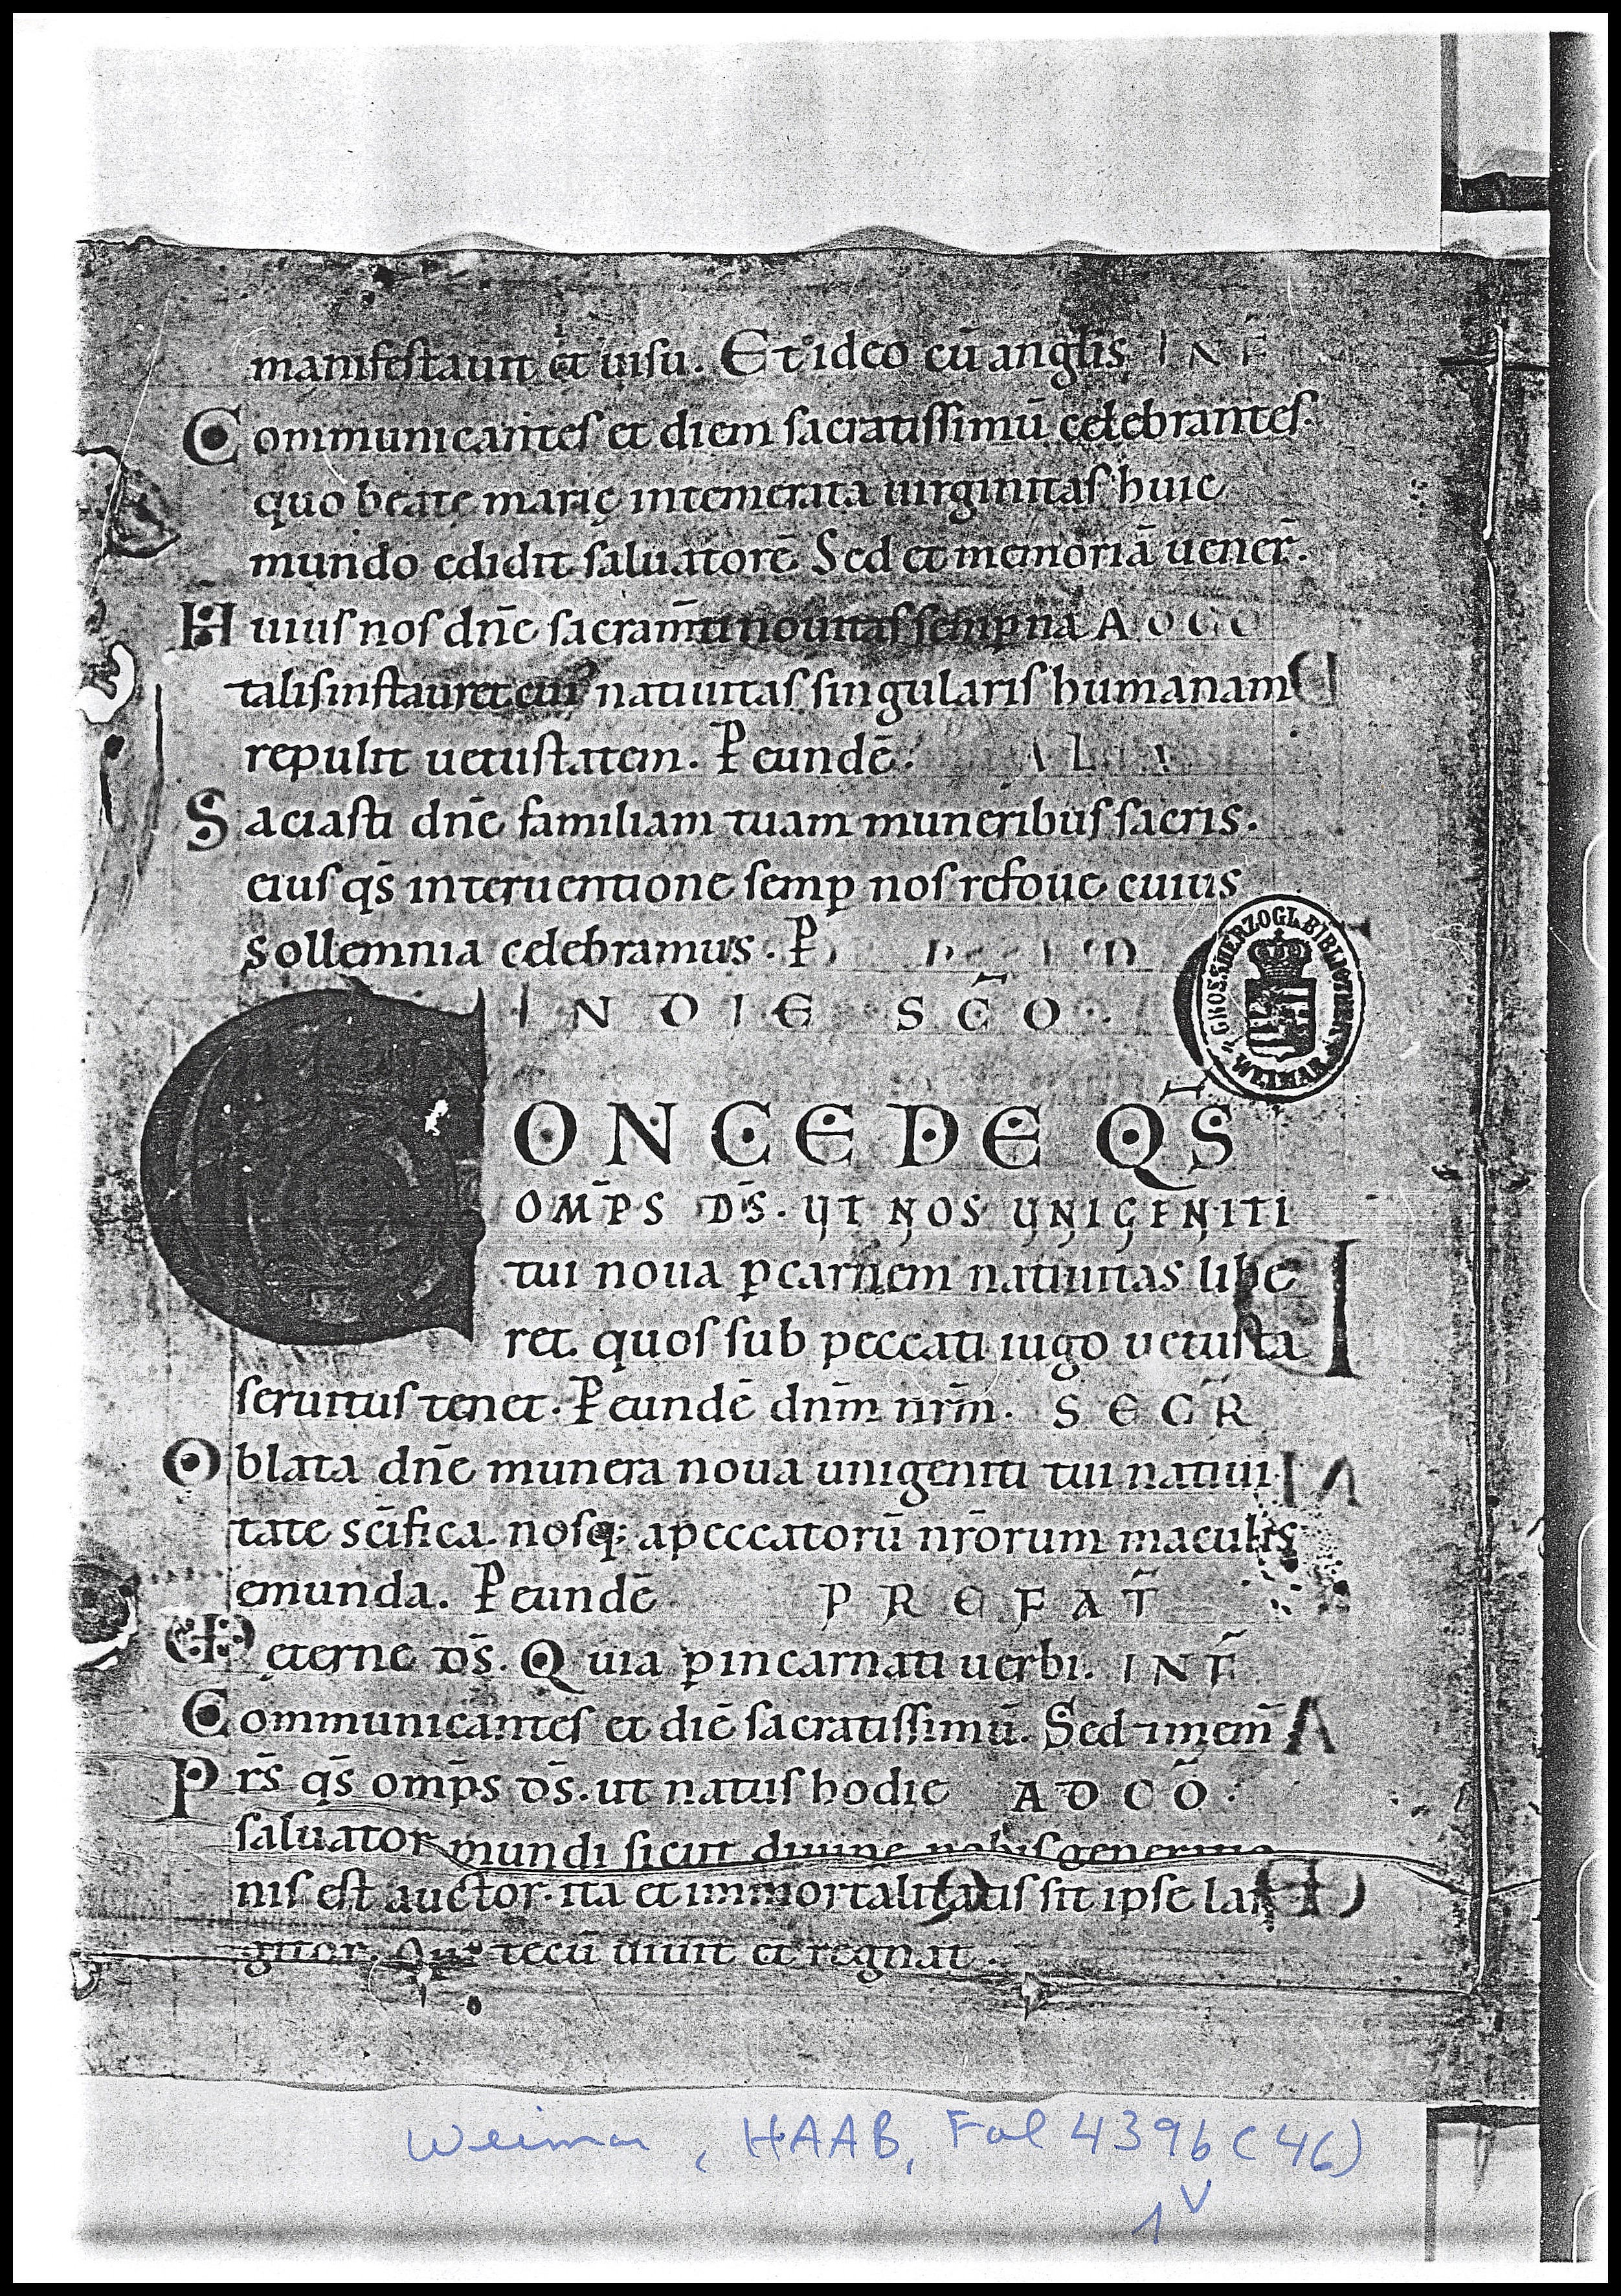 manifestauit et uisu. Et ideo cū anglis INF̄
Communicantes et diem sacratissimū celebrantes.
quo beate marię intemerata uirginitas huic
mundo edidit saluatorē Sed et memoriā uener̄.
Huius nos dn̄e sacram̄ti nouitas semp na A
talis instauret cui' natiuitas singularis humanam
repulit uetustatem. P eundē. ALIA
Saciasti dn̄e familiam tuam muneribus sacris.
eius qs̄ interuentione semp nos refoue cuius
sollemnia celebramus. P
IN DIE SC̄O.
CONCEDE QS̄
OMP̄S DS̄. UT NOS UNIGENITI
tui noua p carnem natiuitas libe
ret quos sub peccati iugo uetusta
seruitus tenet. P eundē dnm̄ nrm̄. SECR̄
Oblata dn̄e munera noua unigeniti tui natiui
tate sc̄ifica. nosq; a peccatorū nr̄orum maculis
emunda. P eundē PREFAT̄
eterne ds̄. Quia p incarnati uerbi. INF̄
Communicantes et diē sacratissimū. Sed 7 mem̄
Prs̄ qs̄ omp̄s ds̄. ut natus hodie AD CŌ.
saluator mundi sicut diuine nobis generatio
nis est auctor. ita et immortalitatis sit ipse lar
gitor. Qui tecū uiuit et regnat.
GROSSHERZOGL. BIBLIOTHEK WEIMAR
Weimar, HAAB, Fol 439b (46)
1v